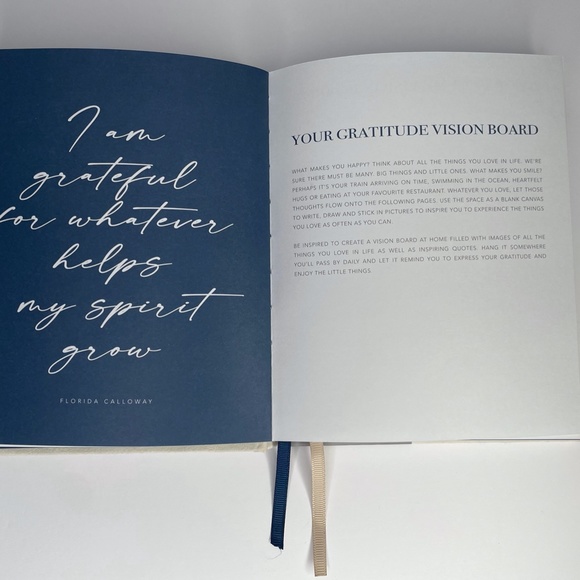 I am
grateful
for whatever
helps
my spirit
grow
FLORIDA CALLOWAY
YOUR GRATITUDE VISION BOARD
WHAT MAKES YOU HAPPY? THINK ABOUT ALL THE THINGS YOU LOVE IN LIFE. WE'RE
SURE THERE MUST BE MANY. BIG THINGS AND LITTLE ONES. WHAT MAKES YOU SMILE?
PERHAPS IT'S YOUR TRAIN ARRIVING ON TIME, SWIMMING IN THE OCEAN, HEARTFELT
HUGS OR EATING AT YOUR FAVOURITE RESTAURANT. WHATEVER YOU LOVE, LET THOSE
THOUGHTS FLOW ONTO THE FOLLOWING PAGES. USE THE SPACE AS A BLANK CANVAS
TO WRITE, DRAW AND STICK IN PICTURES TO INSPIRE YOU TO EXPERIENCE THE THINGS
YOU LOVE AS OFTEN AS YOU CAN.
BE INSPIRED TO CREATE A VISION BOARD AT HOME FILLED WITH IMAGES OF ALL THE
THINGS YOU LOVE IN LIFE AS WELL AS INSPIRING QUOTES. HANG IT SOMEWHERE
YOU'LL PASS BY DAILY AND LET IT REMIND YOU TO EXPRESS YOUR GRATITUDE AND
ENJOY THE LITTLE THINGS.